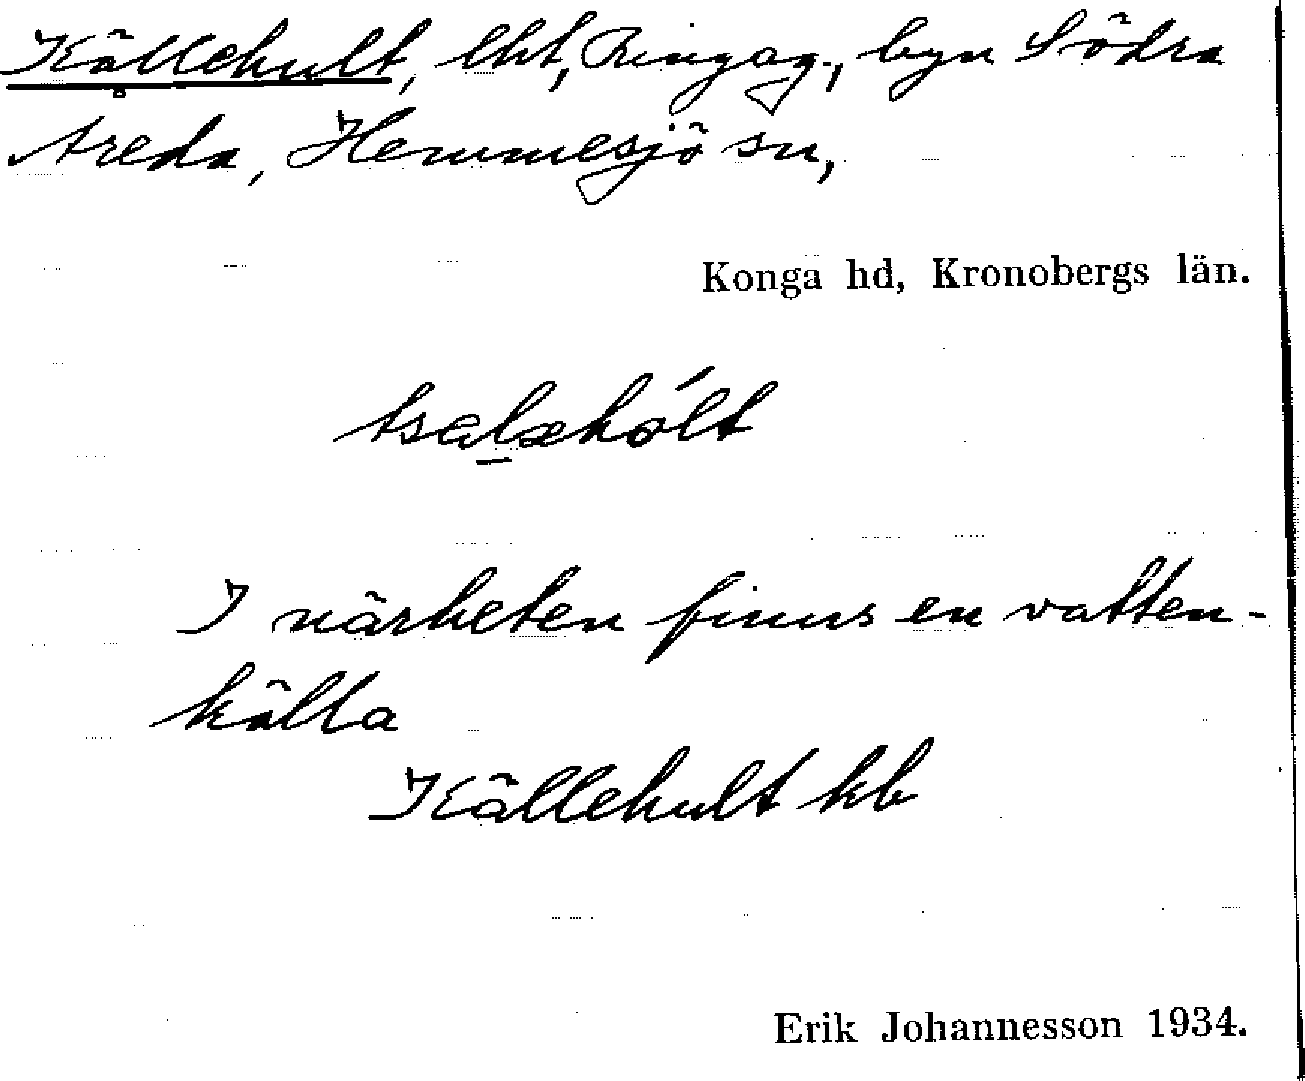 Källehult, lht, Ringag., byn Södra
Areda, Hemmesjö sn,
Konga hd, Kronobergs län.
tsalæhólt
I närheten finns en vatten-
källa
Källehult kb
Erik Johannesson 1934.